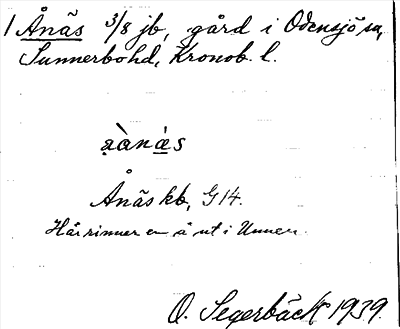 1 Ånäs 3/8 jb, gård i Odensjö sn,
Sunnerbo hd, Kronob. l.
a̤ànä̀s
Ånäs kb, G14.
Här rinner en å ut i Unnen.
O. Segerbäck 1939.